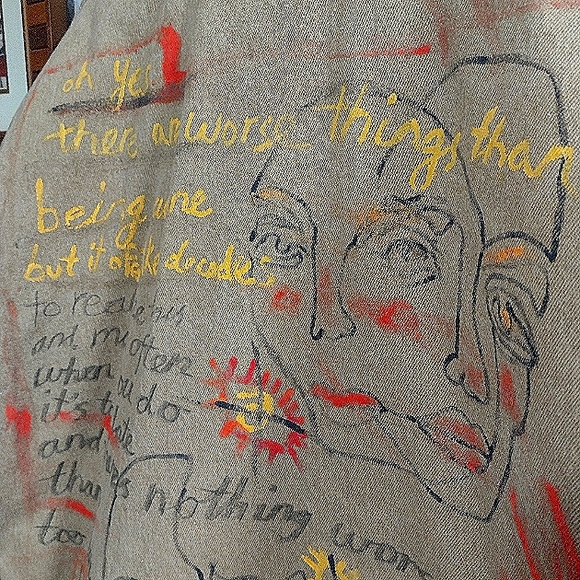 oh yes
there are worse things than
being one
but it often take decades
to realize this
and most often
when you do
it's too late
and there's nothing worse
than
too